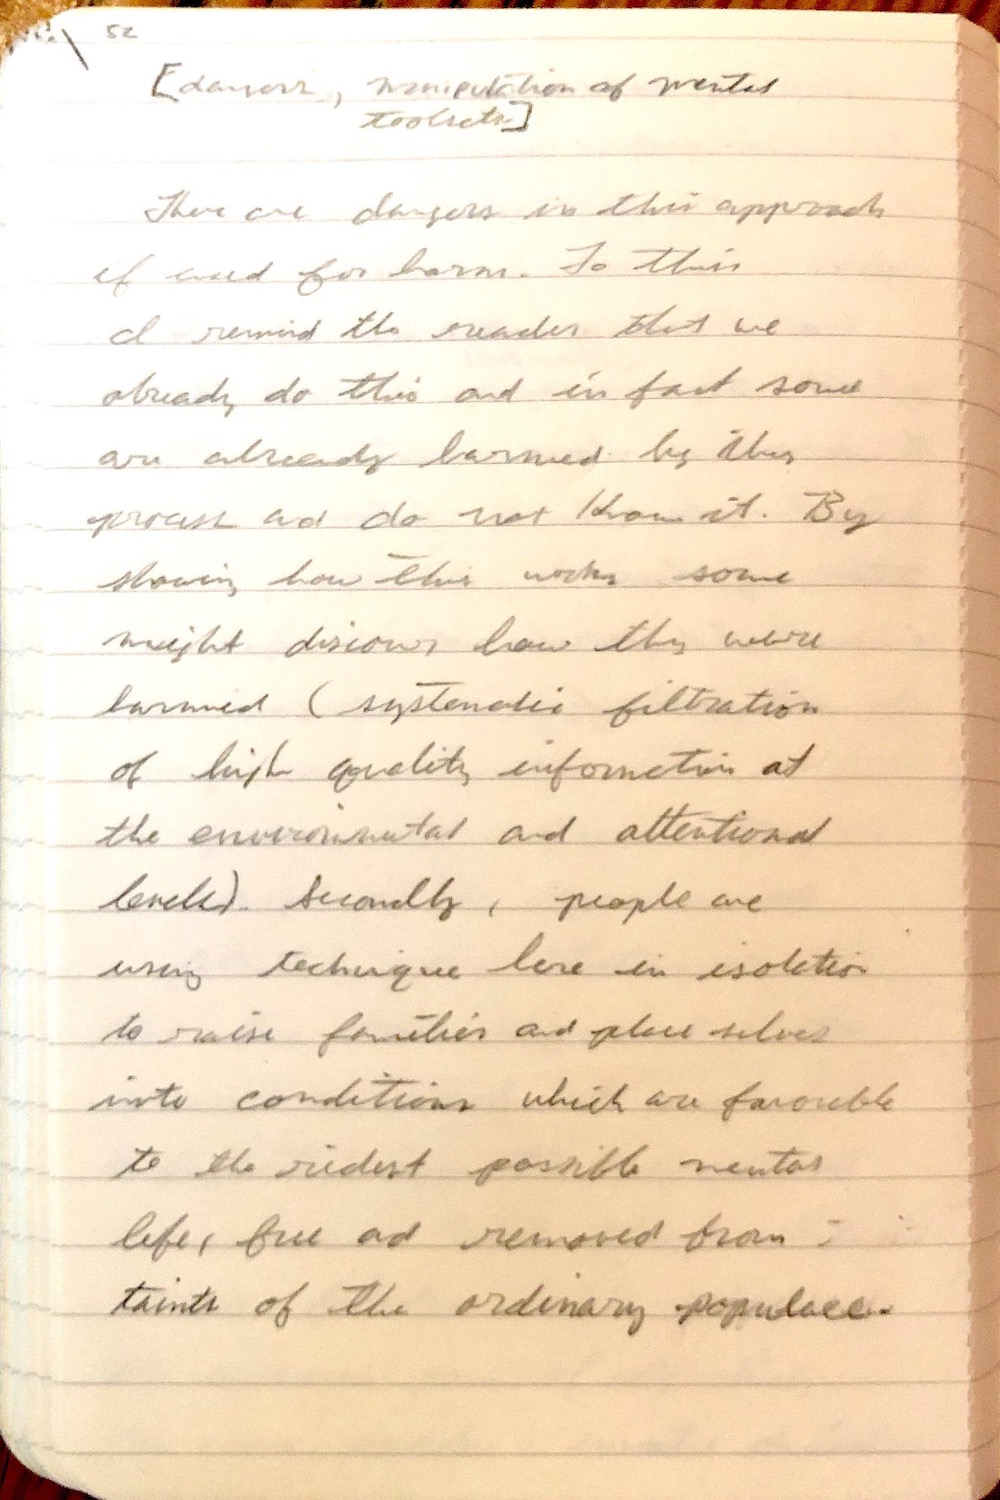 52
[dangers, manipulation of mental
toolsets]
There are dangers in this approach
if used for harm. To this
I remind the reader that we
already do this and in fact some
are already harmed by this
process and do not know it. By
showing how this works some
might discover how they were
harmed (systematic filtration
of high quality information at
the environmental and attentional
levels). Secondly, people are
using technique here in isolation
to raise families and place selves
into conditions which are favorable
to the richest possible mental
life, free and removed from
taints of the ordinary populace.